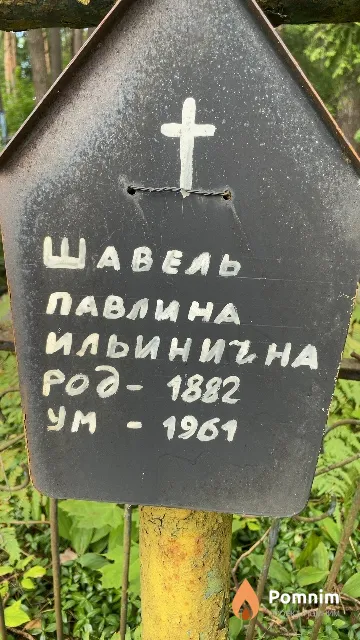 ШАВЕЛЬ
ПАВЛИНА
ИЛЬИНИЧНА
РОД - 1882
УМ - 1961
Pomnim